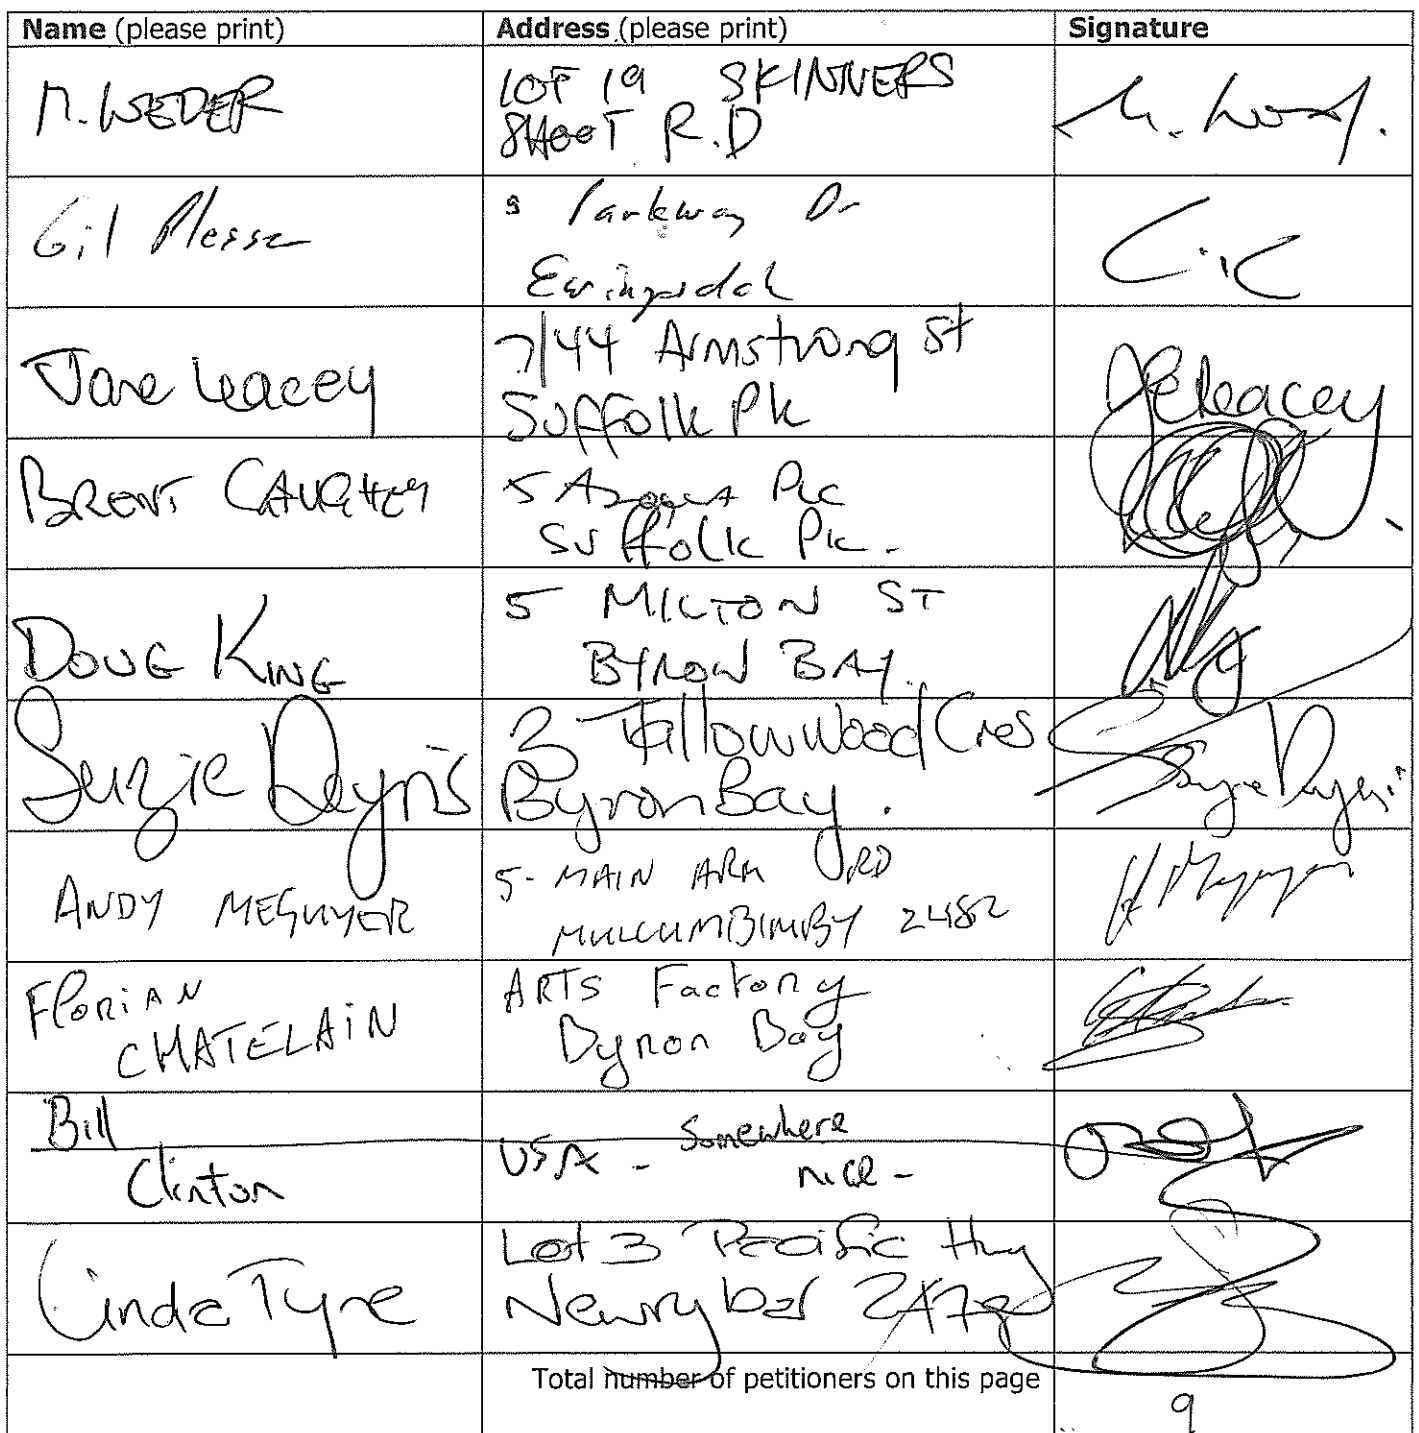 Name (please print) Address (please print) Signature
M. WEDER
LOT 19 SKINNERS
SHOOT R.D
Gil
9 Parkway Dr
Ewingsdale
Jane Leacey
7/44 Armstrong St
Suffolk Pk
JLeacey
BRENT CAUGHEY
5 Plc
Suffolk Pk.
DOUG KING
5 MILTON ST
BYRON BAY.
Suzie Deyris
3 Tallowwood Cres
Byron Bay.
ANDY MEGUYER
5 - MAIN ARM RD
MULLUMBIMBY 2482
FloRiAN
CHATELAiN
ARTS Factory
Byron Bay
Bill
Clinton
USA - Somewhere
nice -
Linda Tyre
Lot 3 Pacific Hwy
Newrybar 2479
Total number of petitioners on this page
9